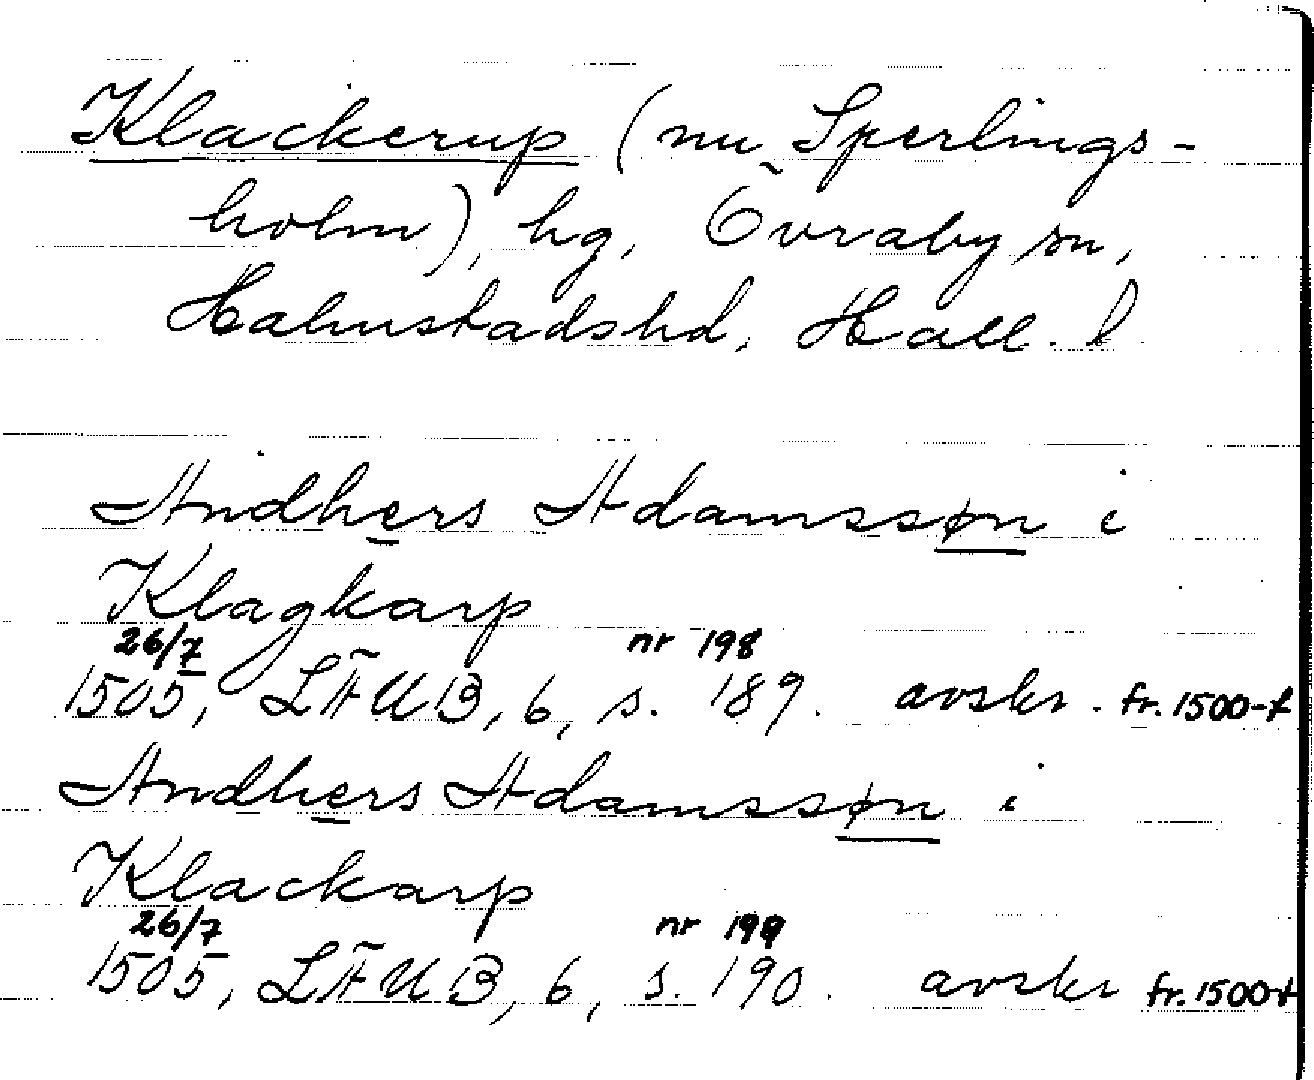 Klackerup (nu Sperlings-
holm), hg, Övraby sn,
Halmstadshd, Hall. l
Andhers Adamssøn i
Klagkarp
26/7 nr 198
1505, LÄUB, 6, s. 189. avskr. fr. 1500-t
Andhers Adamssøn i
Klackarp
26/7 nr 199
1505, LÄUB, 6, s. 190. avskr fr. 1500-t